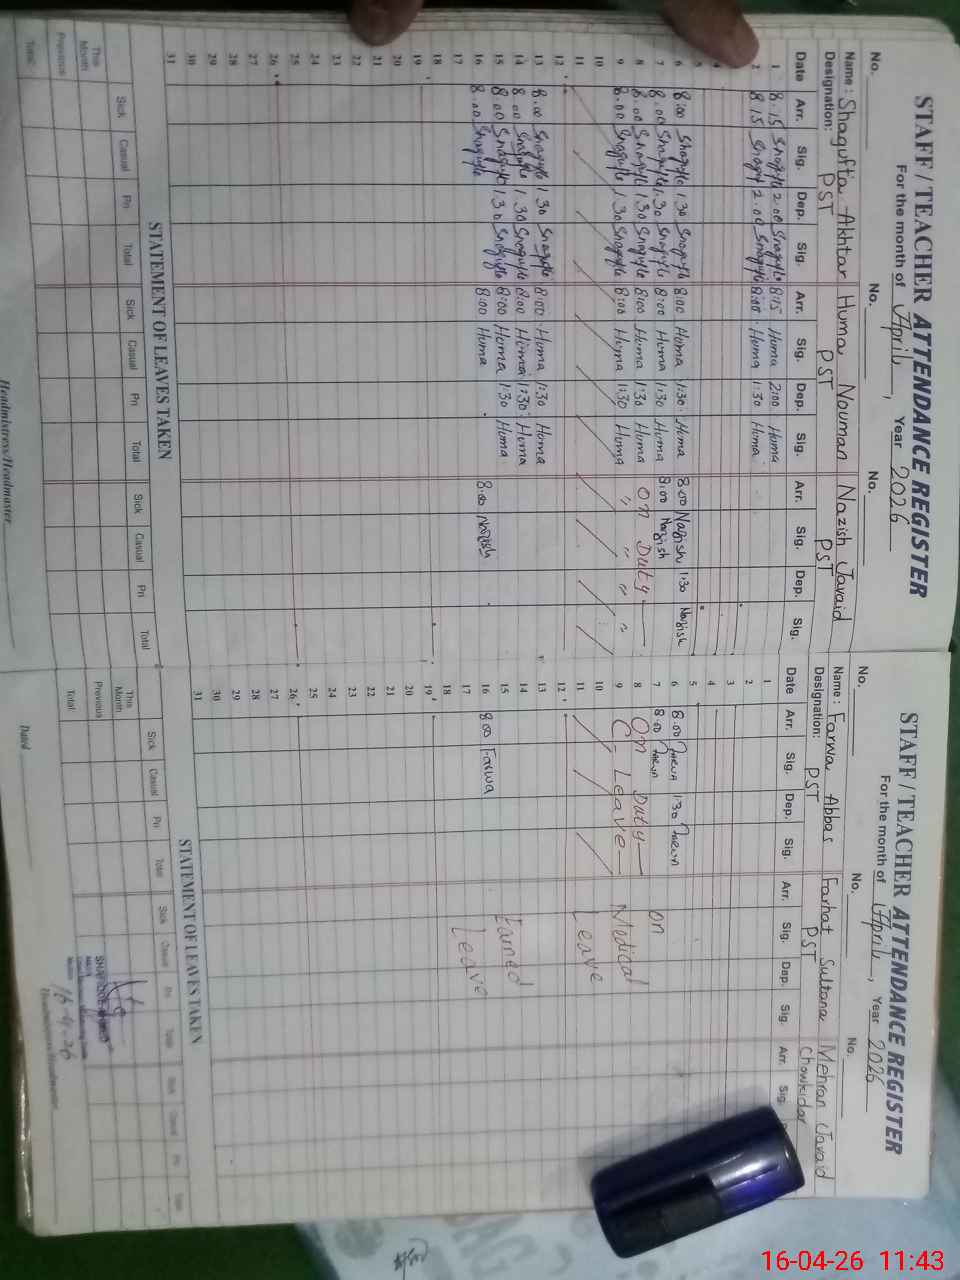 STAFF / TEACHER ATTENDANCE REGISTER
For the month of April, Year 2026
No. No. No.
Name: Shagufta Akhtar Huma Nouman Nazish Javaid
Designation: PST PST PST
Date Arr. Sig. Dep. Sig. Arr. Sig. Dep. Sig. Arr. Sig. Dep. Sig.
1 8.15 Shagufta 2.00 Shagufta 8:15 Huma 2:00 Huma
2 8.15 2.00 8:00 Huma 1:30 Huma
3
4
5
6 8.00 Shagufta 1.30 Shagufta 8:00 Huma 1:30 Huma 8:00 Nazish 1:30 Nazish
7 8.00 Shagufta 1.30 Shagufta 8:00 Huma 1:30 Huma 8:00 Nazish
8 8.00 Shagufta 1.30 Shagufta 8:00 Huma 1:30 Huma On Duty
9 8.00 Shagufta 1.30 Shagufta 8:00 Huma 1:30 Huma " " " "
10
11
12
13 8.00 Shagufta 1.30 Shagufta 8:00 Huma 1:30 Huma
14 8.00 Shagufta 1.30 Shagufta 8:00 Huma 1:30 Huma
15 8.00 Shagufta 1.30 Shagufta 8:00 Huma 1:30 Huma
16 8.00 Shagufta 8:00 Huma 8:00 Nazish
17
18
19
20
21
22
23
24
25
26
27
28
29
30
31
STATEMENT OF LEAVES TAKEN
Sick Casual Pri Total Sick Casual Pri Total Sick Casual Pri Total
This Month
Previous
Total:
Headmistress/Headmaster
STAFF / TEACHER ATTENDANCE REGISTER
For the month of April, Year 2026
No. No. No.
Name: Farwa Abbas Farhat Sultana Mehran Javaid
Designation: PST PST Chowkidar
Date Arr. Sig. Dep. Sig. Arr. Sig. Dep. Sig. Arr. Sig.
1
2
3
4
5
6 8.00 Farwa 1:30 Farwa
7 8.00 Farwa on
8 On Duty
9 C Leave Medical
10
11 Leave
12
13
14
15 Earned
16 8:00 Farwa
17 Leave
18
19
20
21
22
23
24
25
26
27
28
29
30
31
STATEMENT OF LEAVES TAKEN
Sick Casual Pri Total Sick Casual Pri Total Sick Casual Pri Total
This Month
Previous
Total:
16-4-26
Dated
Headmistress/Headmaster
16-04-26 11:43